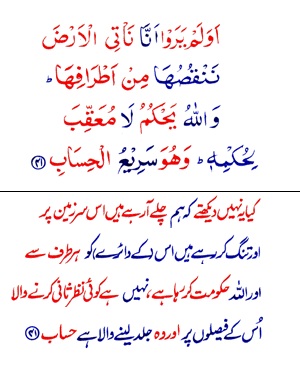 اَوَلَمْ یَرَوْا اَنَّا نَاْتِی الْاَرْضَ
نَنْقُصُهَا مِنْ اَطْرَافِهَا ؕ
وَ اللّٰهُ یَحْكُمُ لَا مُعَقِّبَ
لِحُكْمِهٖ ؕ وَهُوَ سَرِیْعُ الْحِسَابِ ﴿۴۱﴾
کیا یہ نہیں دیکھتے کہ ہم چلے آرہے ہیں اس سرزمین پر
اور تنگ کررہے ہیں اس (کے دائرے) کو ہر طرف سے
اور اللہ حکومت کررہا ہے، نہیں ہے کوئی نظرثانی کرنے والا
اُس کے فیصلوں پر اور وہ جلد لینے والا ہے حساب ﴿۴۱﴾